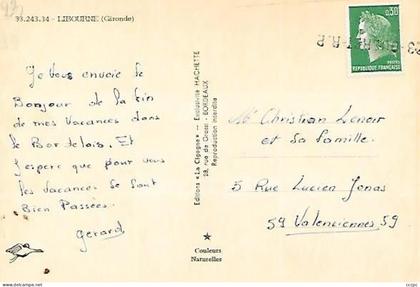 33.243.34 - LIBOURNE (Gironde)
Je Vous envoie le
Bonjour de la fin
de mes Vacances dans
le Bordelais. Et
J'espere que pour vous
les vacances se sont
Bien Passées.
Gerard
Editions «La Cigogne» - Exclusivité HACHETTE
28, rue de Grassi - BORDEAUX
Reproduction interdite
Couleurs
Naturelles
0,30
POSTES
REPUBLIQUE FRANÇAISE
Mr Christian Lenoir
et sa famille.
5 Rue Lucien Jonas
59 Valenciennes 59